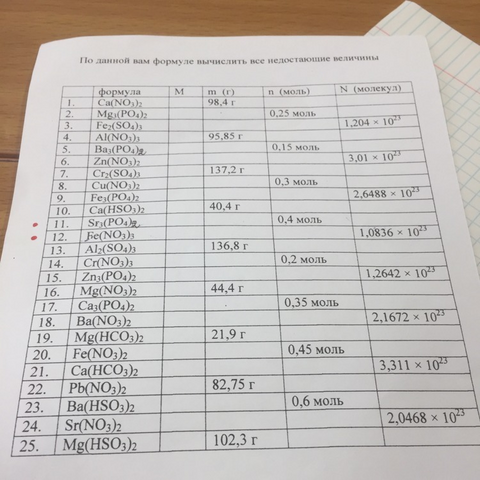 По данной вам формуле вычислить все недостающие величины
формула M m (г) n (моль) N (молекул)
1. Ca(NO₃)₂ 98,4 г
2. Mg₃(PO₄)₂ 0,25 моль
3. Fe₂(SO₄)₃ 1,204 × 10²³
4. Al(NO₃)₃ 95,85 г
5. Ba₃(PO₄)₂ 0,15 моль
6. Zn(NO₃)₂ 3,01 × 10²³
7. Cr₂(SO₄)₃ 137,2 г
8. Cu(NO₃)₂ 0,3 моль
9. Fe₃(PO₄)₂ 2,6488 × 10²³
10. Ca(HSO₃)₂ 40,4 г
11. Sr₃(PO₄)₂ 0,4 моль
12. Fe(NO₃)₃ 1,0836 × 10²³
13. Al₂(SO₄)₃ 136,8 г
14. Cr(NO₃)₃ 0,2 моль
15. Zn₃(PO₄)₂ 1,2642 × 10²³
16. Mg(NO₃)₂ 44,4 г
17. Ca₃(PO₄)₂ 0,35 моль
18. Ba(NO₃)₂ 2,1672 × 10²³
19. Mg(HCO₃)₂ 21,9 г
20. Fe(NO₃)₂ 0,45 моль
21. Ca(HCO₃)₂ 3,311 × 10²³
22. Pb(NO₃)₂ 82,75 г
23. Ba(HSO₃)₂ 0,6 моль
24. Sr(NO₃)₂ 2,0468 × 10²³
25. Mg(HSO₃)₂ 102,3 г